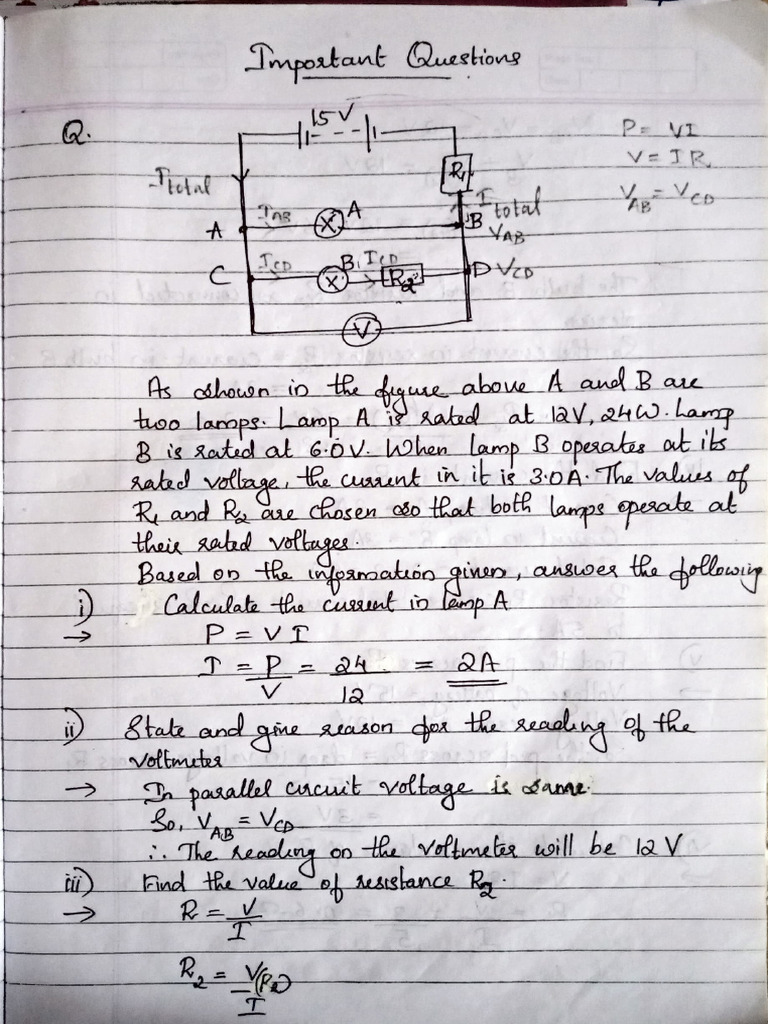 Important Questions
Q.
15 V
P = VI
V = IR
V_AB = V_CD
R₁
I total
I total
A
I_AB
A
B
V_AB
C
I_CD
B
I_CD
R₂
D V_CD
V
As shown in the figure above A and B are
two lamps. Lamp A is rated at 12V, 24W. Lamp
B is rated at 6.0V. When lamp B operates at its
rated voltage, the current in it is 3.0A. The values of
R₁ and R₂ are chosen so that both lamps operate at
their rated voltages.
Based on the information given, answer the following
i) Calculate the current in lamp A
→ P = VI
I = P/V = 24/12 = 2A
ii) State and give reason for the reading of the
voltmeter
→ In parallel circuit voltage is same.
So, V_AB = V_CD
∴ The reading on the voltmeter will be 12 V
iii) Find the value of resistance R₂.
→ R = V/I
R₂ = V(R₂)/I